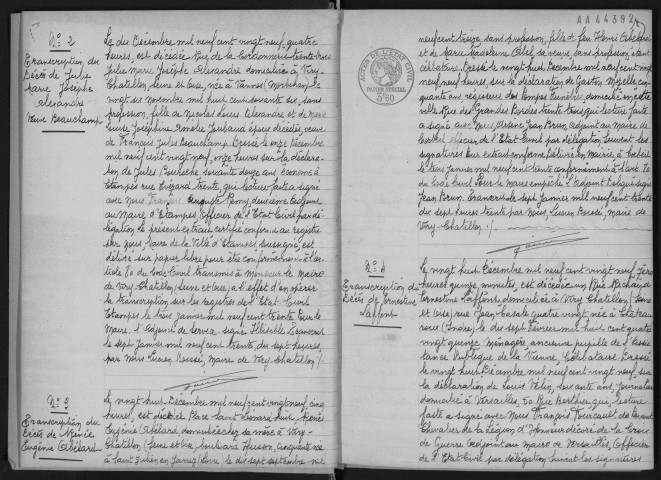 N° 2
Transcription du
Décès de Julie
Marie Josèphe
Alexandre
Veuve Beauchamp
Le dix Décembre mil neuf cent vingt neuf, quatre
heures, est décédée Rue de la Cordonnerie trente trois
Julie Marie Josèphe Alexandre domestique à Viry-
Chatillon, Seine et Oise, née à Vannes (Morbihan) le
vingt six Novembre mil huit cent soixante six, sans
profession, fille de Nicolas Louis Alexandre et de Marie
Louise Joséphine Amélie Joubaud époux décédés, veuve
de François Jules Beauchamp. Dressé le onze Décembre
mil neuf cent vingt neuf, onze heures sur la déclara-
tion de Jules Bourache, soixante douze ans, économe à
Etampes rue trente, qui lecture faite a signé
avec Nous François Auguste Remy, deuxième adjoint
au Maire d'Etampes Officier de l'Etat Civil par dé-
légation le présent extrait certifié conforme au registre
par nous, Maire de la Ville d'Etampes, soussigné, est
délivré sur papier libre pour être conformément à l'ar-
ticle 80 du Code Civil transmis à Monsieur le Maire
de Viry-Chatillon (Seine et Oise) à l'effet d'en opérer
la transcription sur les registres de l'Etat Civil
Etampes le trois Janvier mil neuf cent trente Pour le
Maire, l'Adjoint de Service signé Illisible Transcrit
le sept Janvier mil neuf cent trente, dix sept heures,
par Nous Lucien Rossé, Maire de Viry-Chatillon /.
N° 3
Transcription du
Décès de Renée
Eugénie Abélard
Le vingt huit Décembre mil neuf cent vingt neuf cinq
heures, est décédée Place Saint Léonard huit, Renée
Eugénie Abélard, domiciliée chez sa mère à Viry-
Chatillon (Seine et Oise, boulevard Husson, cinquante née
à Saint Julien en Jarrez, Loire, le dix sept septembre mil
AA44392
neuf cent treize, sans profession, fille de feu Henri Abélard
et de Marie Madeleine Abel sa veuve, sans profession, étant
célibataire. Dressé le vingt huit Décembre mil neuf cent vingt
neuf, neuf heures, sur la déclaration de Gaston Mizelle cin-
quante ans, régisseur des Pompes Funèbres, domicilié en cette
ville Rue des Grandes Bordes trente trois qui lecture faite
a signé avec Nous, Jean Brun, Adjoint au Maire de
Corbeil, officier de l'Etat Civil par délégation Suivent les
signatures Pour extrait conforme délivré en Mairie, à Corbeil
le trois Janvier mil neuf cent trente conformément à l'art. 80
du Code Civil Pour le Maire empêché l'Adjoint Délégué signé
Jean Brun. Transcrit le sept Janvier mil neuf cent trente
dix sept heures trente par Nous, Lucien Rossé, Maire de
Viry-Chatillon /.
ACTES DE L'ETAT CIVIL
PAPIER SPECIAL
3f60
N° 4
Transcription du
Décès de Ernestine
Laffont
Le vingt huit Décembre mil neuf cent vingt neuf, zéro
heure et quinze minutes, est décédée Rue Richaud
Ernestine Laffont, domiciliée à Viry-Chatillon (Seine
et Oise), rue Jean-Casale quatre vingt, née à Chateau
roux (Indre), le dix sept Février mil huit cent quatre
vingt quinze, Ménagère ancienne pupille de l'Assis-
tance Publique de la Vienne, Célibataire. Dressé
le vingt huit Décembre mil neuf cent vingt neuf, sur
la déclaration de Louis Vélin, soixante ans, Journalier
domicilié à Versailles, 20 Rue Berthier, qui, lecture
faite a signé avec Nous François Tourcaul de Larant
Chevalier de la Légion d'Honneur décoré de la Croix
de Guerre Adjoint au maire de Versailles, Officier
de l'Etat Civil par délégation Suivent les signatures